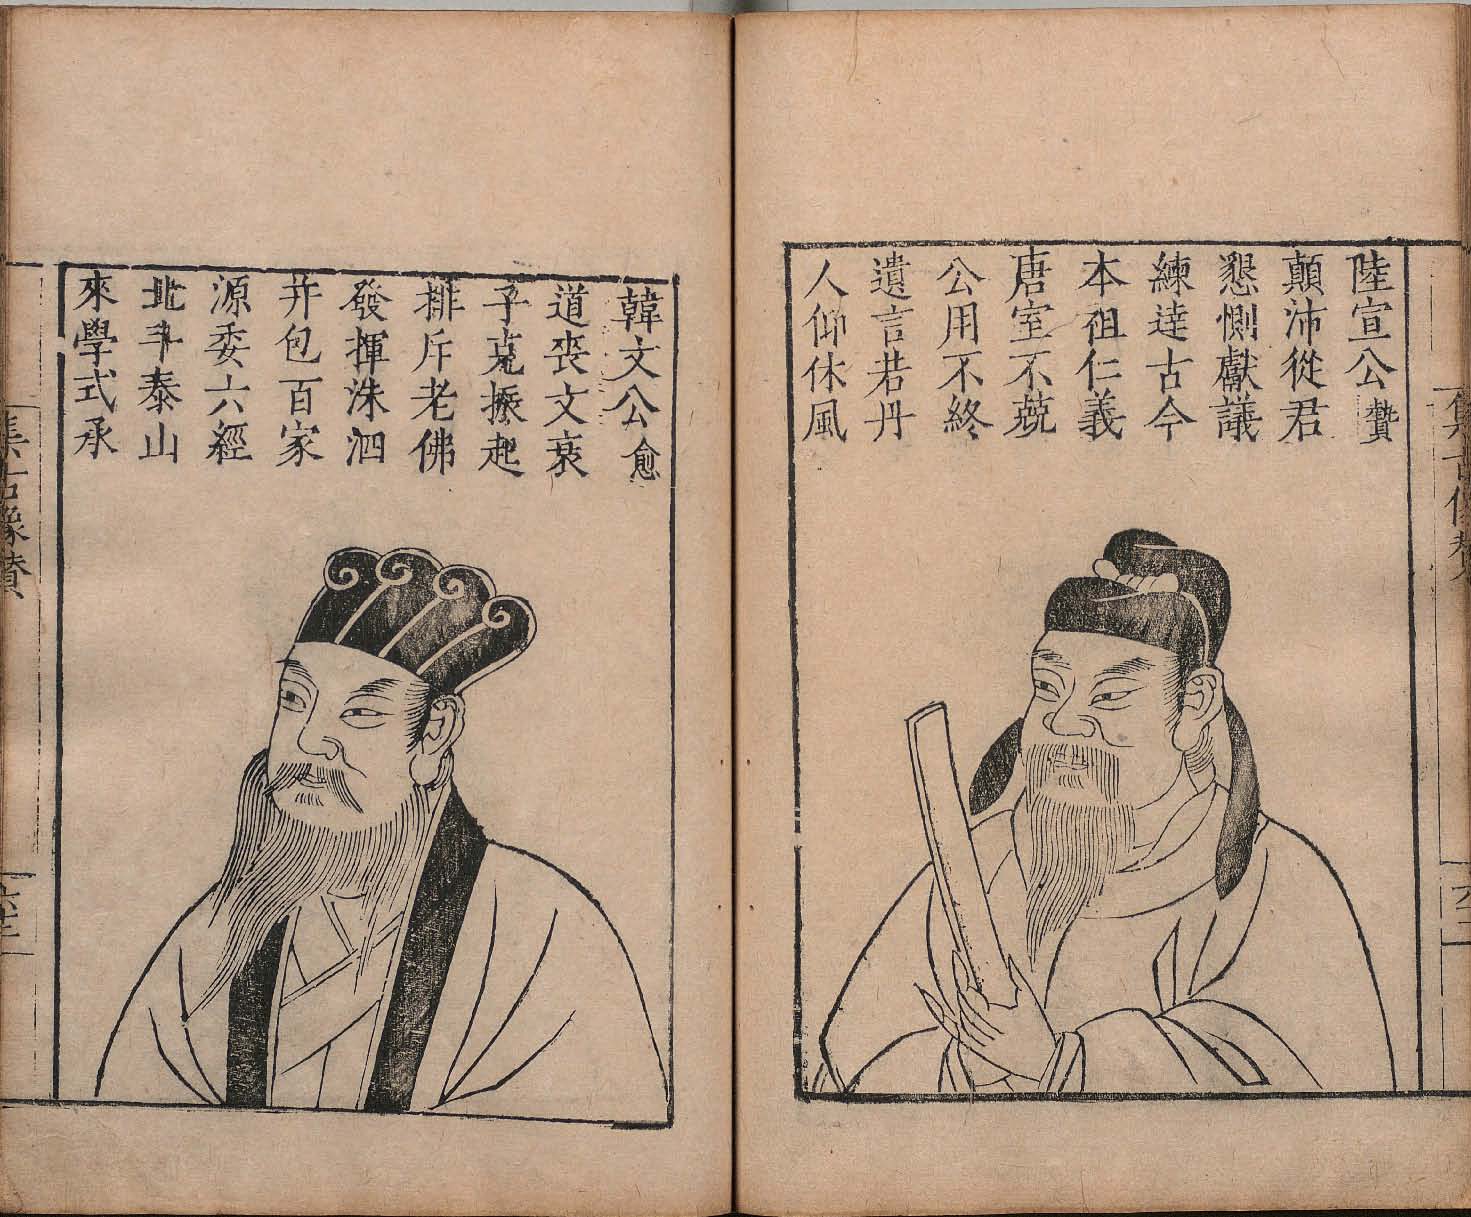 集古像贊
陸宣公贄
顛沛從君
懇惻獻議
練達古今
本祖仁義
唐室不兢
公用不終
遺言若丹
人仰休風
韓文公愈
道喪文衰
子克振起
排斥老佛
發揮洙泗
并包百家
源委六經
北斗泰山
來學式承
集古像贊